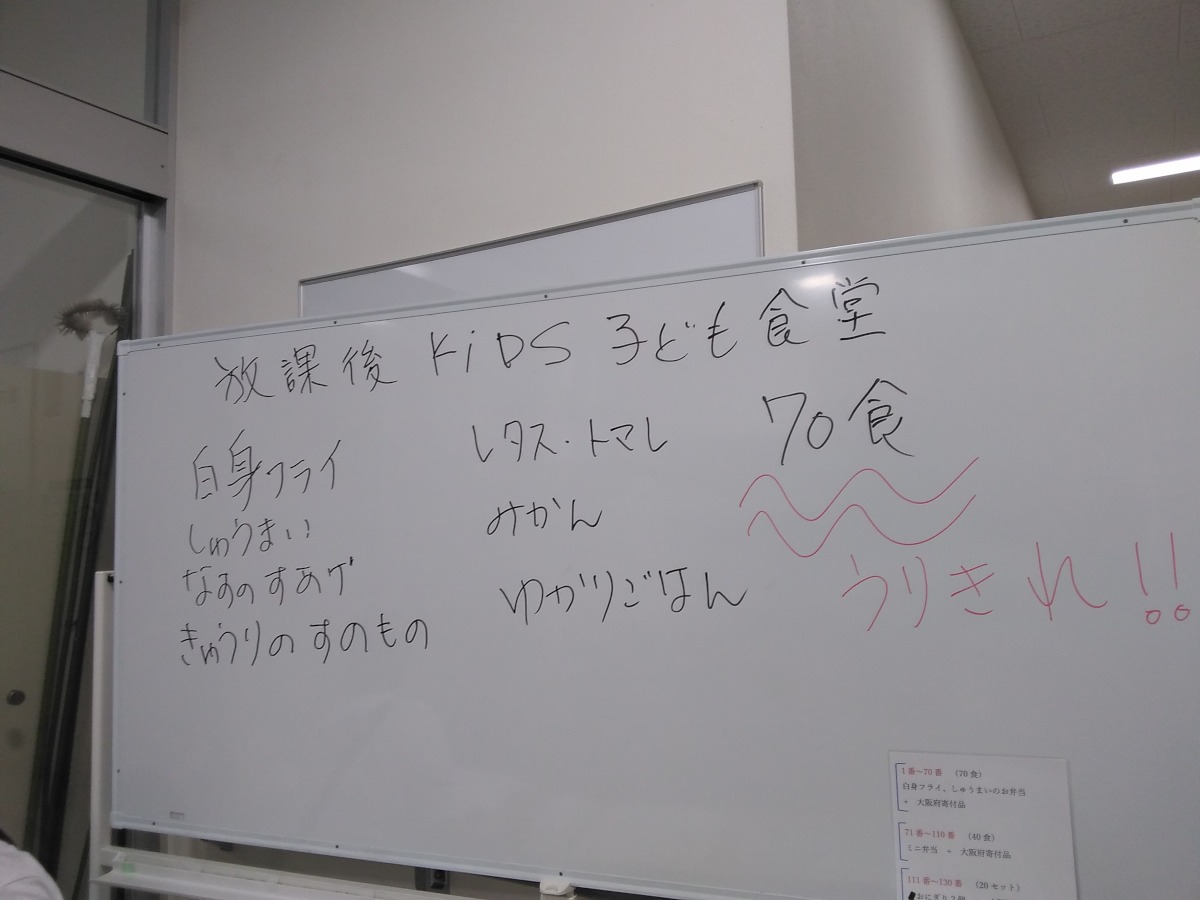 放課後 KiDS 子ども食堂
白身フライ
しゅうまい
なすのすあげ
きゅうりのすのもの
レタス・トマト
みかん
ゆかりごはん
70食
うりきれ!!
1番～70番 （70食）
白身フライ、しゅうまいのお弁当
+ 大阪府寄付品
71番～110番 （40食）
ミニ弁当 + 大阪府寄付品
111番～130番 （20セット）
おにぎり2個